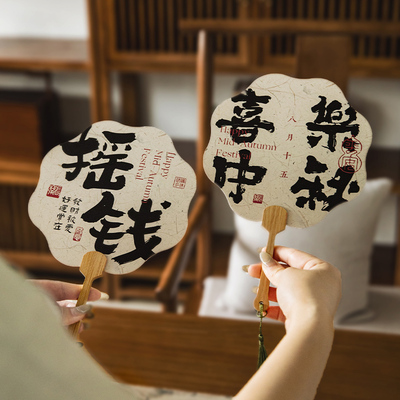 摇钱
Happy
Mid Autumn
Festival
好運常在
喜樂
中秋
八月十五
Happy
Mid Autumn
Festival